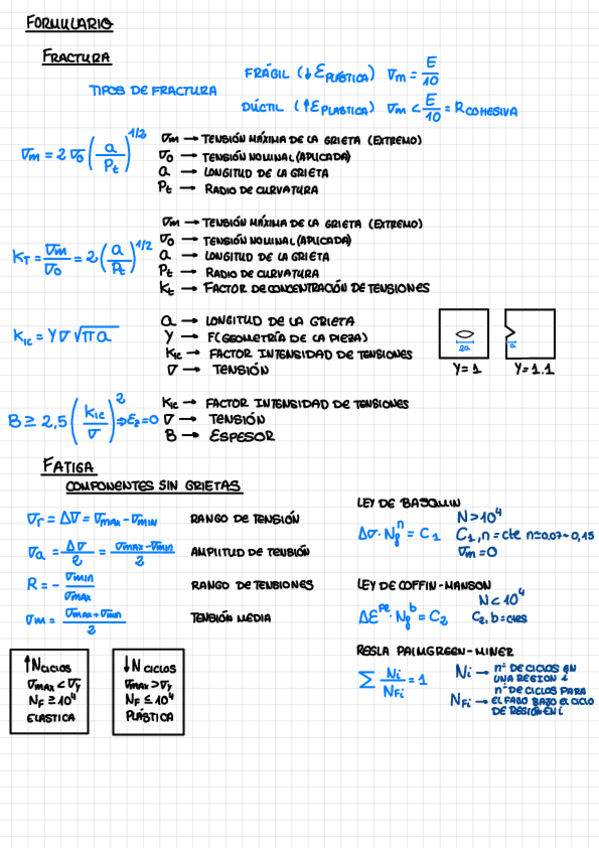 FORMULARIO
FRACTURA
TIPOS DE FRACTURA
FRÁGIL (↓ε PLÁSTICA) σm = E/10
DÚCTIL (↑ε PLASTICA) σm < E/10 = R COHESIVA
σm = 2 σo (a/ρt)^1/2
σm → TENSIÓN MÁXIMA DE LA GRIETA (EXTREMO)
σo → TENSIÓN NOMINAL (APLICADA)
a → LONGITUD DE LA GRIETA
ρt → RADIO DE CURVATURA
KT = σm/σo = 2 (a/ρt)^1/2
σm → TENSIÓN MÁXIMA DE LA GRIETA (EXTREMO)
σo → TENSIÓN NOMINAL (APLICADA)
a → LONGITUD DE LA GRIETA
ρt → RADIO DE CURVATURA
Kt → FACTOR DE CONCENTRACIÓN DE TENSIONES
KIC = Yσ√πa
a → LONGITUD DE LA GRIETA
Y → F(GEOMETRÍA DE LA PIEZA)
KIC → FACTOR INTENSIDAD DE TENSIONES
σ → TENSIÓN
2a
a
Y = 1
Y = 1.1
B ≥ 2,5 (KIC/σ)^2 ⇒ εz = 0
KIC → FACTOR INTENSIDAD DE TENSIONES
σ → TENSIÓN
B → ESPESOR
FATIGA
COMPONENTES SIN GRIETAS
σr = Δσ = σMAX - σMIN RANGO DE TENSIÓN
σa = Δσ/2 = (σMAX - σMIN)/2 AMPLITUD DE TENSIÓN
R = - σMIN/σMAX RANGO DE TENSIONES
σm = (σMAX + σMIN)/2 TENSIÓN MEDIA
LEY DE BASQUIN
Δσ · Nf^n = C1
N > 10^4
C1, n = cte n≈0,07-0,15
σm = 0
LEY DE COFFIN-MANSON
ΔE^pe · Nf^b = C2
N < 10^4
C2, b = ctes
REGLA PALMGREEN-MINER
Σ Ni/NFi = 1
Ni → nº DE CICLOS EN
UNA REGION i
NFi → nº DE CICLOS PARA
EL FALLO BAJO EL CICLO
DE REGIÓN EN i
↑N CICLOS
σMAX < σy
NF ≥ 10^4
ELASTICA
↓N CICLOS
σMAX > σy
NF ≤ 10^4
PLÁSTICA